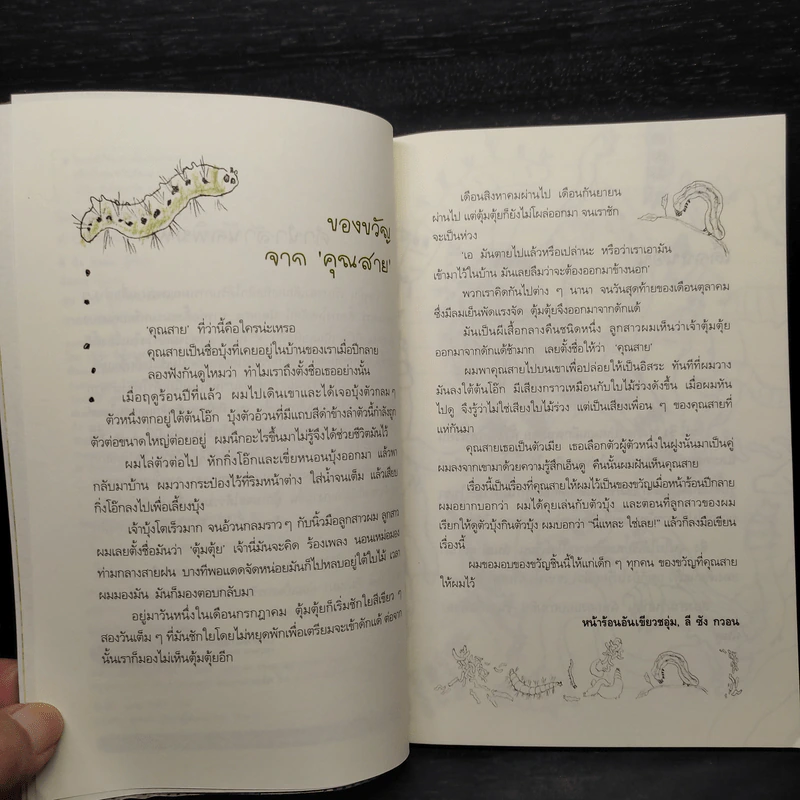 ของขวัญ
จาก 'คุณสาย'
'คุณสาย' ที่ว่านี้คือใครน่ะเหรอ
คุณสายเป็นชื่อบุ้งที่เคยอยู่ในบ้านของเราเมื่อปีกลาย
ลองฟังกันดูไหมว่า ทำไมเราถึงตั้งชื่อเธออย่างนั้น
เมื่อฤดูร้อนปีที่แล้ว ผมไปเดินเขาและได้เจอบุ้งตัวกลมๆ
ตัวหนึ่งตกอยู่ใต้ต้นโอ๊ก บุ้งตัวอ้วนที่มีแถบสีดำข้างลำตัวนี้กำลังถูก
ตัวต่อขนาดใหญ่ต่อยอยู่ ผมนึกอะไรขึ้นมาไม่รู้จึงได้ช่วยชีวิตมันไว้
ผมไล่ตัวต่อไป หักกิ่งโอ๊กและเขี่ยหนอนบุ้งออกมา แล้วพา
กลับมาบ้าน ผมวางกระป๋องไว้ที่ริมหน้าต่าง ใส่น้ำจนเต็ม แล้วเสียบ
กิ่งโอ๊กลงไปเพื่อเลี้ยงบุ้ง
เจ้าบุ้งโตเร็วมาก จนอ้วนกลมราวๆ กับนิ้วมือลูกสาวผม ลูกสาว
ผมเลยตั้งชื่อมันว่า 'ตุ้มตุ้ย' เจ้านี่มันจะคิด ร้องเพลง นอนเหม่อมอง
ท่ามกลางสายฝน บางทีพอแดดจัดหน่อยมันก็ไปหลบอยู่ใต้ใบไม้ เวลา
ผมมองมัน มันก็มองตอบกลับมา
อยู่มาวันหนึ่งในเดือนกรกฎาคม ตุ้มตุ้ยก็เริ่มชักใยสีเขียว ๆ
สองวันเต็ม ๆ ที่มันชักใยโดยไม่หยุดพักเพื่อเตรียมจะเข้าดักแด้ ต่อจาก
นั้นเราก็มองไม่เห็นตุ้มตุ้ยอีก
เดือนสิงหาคมผ่านไป เดือนกันยายน
ผ่านไป แต่ตุ้มตุ้ยก็ยังไม่โผล่ออกมา จนเราชัก
จะเป็นห่วง
'เอ มันตายไปแล้วหรือเปล่านะ หรือว่าเราเอามัน
เข้ามาไว้ในบ้าน มันเลยลืมว่าจะต้องออกมาข้างนอก'
พวกเราคิดกันไปต่าง ๆ นานา จนวันสุดท้ายของเดือนตุลาคม
ซึ่งมีลมเย็นพัดแรงจัด ตุ้มตุ้ยจึงออกมาจากดักแด้
มันเป็นผีเสื้อกลางคืนชนิดหนึ่ง ลูกสาวผมเห็นว่าเจ้าตุ้มตุ้ย
ออกมาจากดักแด้ช้ามาก เลยตั้งชื่อให้ว่า 'คุณสาย'
ผมพาคุณสายไปบนเขาเพื่อปล่อยให้เป็นอิสระ ทันทีที่ผมวาง
มันลงใต้ต้นโอ๊ก มีเสียงกราวเหมือนกับใบไม้ร่วงดังขึ้น เมื่อผมหัน
ไปดู จึงรู้ว่าไม่ใช่เสียงใบไม้ร่วง แต่เป็นเสียงเพื่อน ๆ ของคุณสายที่
แห่กันมา
คุณสายเธอเป็นตัวเมีย เธอเลือกตัวผู้ตัวหนึ่งในฝูงนั้นมาเป็นคู่
ผมลงจากเขามาด้วยความรู้สึกเอ็นดู คืนนั้นผมฝันเห็นคุณสาย
เรื่องนี้เป็นเรื่องที่คุณสายให้ผมไว้เป็นของขวัญเมื่อหน้าร้อนปีกลาย
ผมอยากบอกว่า ผมได้คุยเล่นกับตัวบุ้ง และตอนที่ลูกสาวของผม
เรียกให้ดูตัวบุ้งกินตัวบุ้ง ผมบอกว่า "นี่แหละ ใช่เลย!" แล้วก็ลงมือเขียน
เรื่องนี้
ผมขอมอบของขวัญชิ้นนี้ให้แก่เด็ก ๆ ทุกคน ของขวัญที่คุณสาย
ให้ผมไว้
หน้าร้อนอันเขียวชอุ่ม, ลี ซัง กวอน